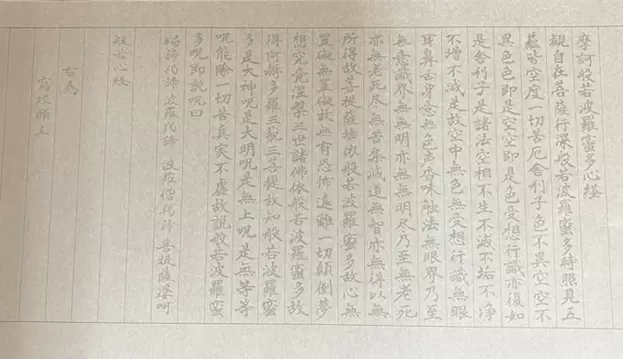 摩訶般若波羅蜜多心経
観自在菩薩行深般若波羅蜜多時照見五
蘊皆空度一切苦厄舎利子色不異空空不
異色色即是空空即是色受想行識亦復如
是舎利子是諸法空相不生不滅不垢不浄
不増不減是故空中無色無受想行識無眼
耳鼻舌身意無色声香味触法無眼界乃至
無意識界無無明亦無無明尽乃至無老死
亦無老死尽無苦集滅道無智亦無得以無
所得故菩提薩埵依般若波羅蜜多故心無
罣礙無罣礙故無有恐怖遠離一切顛倒夢
想究竟涅槃三世諸佛依般若波羅蜜多故
得阿耨多羅三藐三菩提故知般若波羅蜜
多是大神呪是大明呪是無上呪是無等等
呪能除一切苦真実不虚故説般若波羅蜜
多呪即説呪曰
羯諦羯諦 波羅羯諦 波羅僧羯諦 菩提薩婆呵
般若心経
右為
写経願主